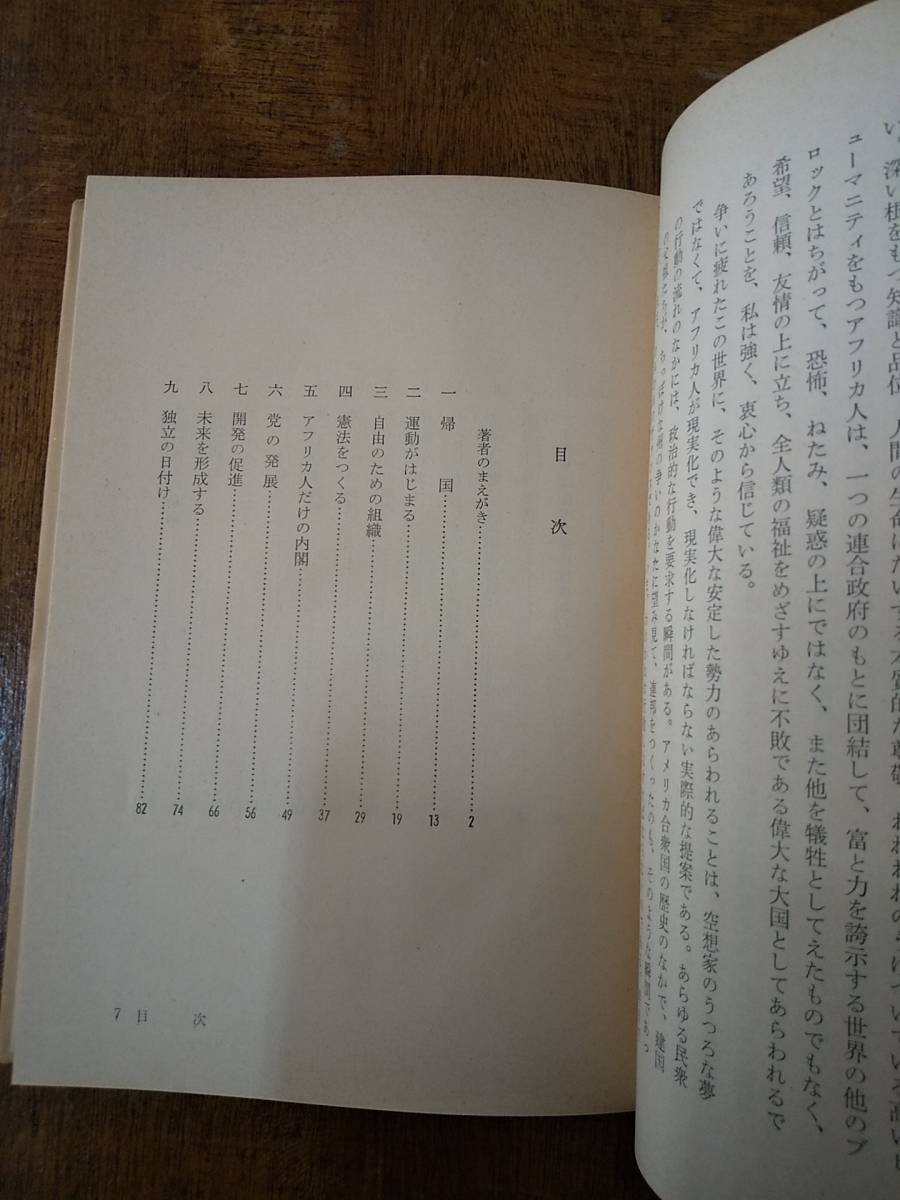 い、深い根をもつ知識と品位、人間の生命にたいする本質的な尊敬、われわれのうけついでいる高いヒ
ューマニティをもつアフリカ人は、一つの連合政府のもとに団結して、富と力を誇示する世界の他のブ
ロックとはちがって、恐怖、ねたみ、疑惑の上にではなく、また他を犠牲としてえたものでもなく、
希望、信頼、友情の上に立ち、全人類の福祉をめざすゆえに不敗である偉大な大国としてあらわれるで
あろうことを、私は強く、衷心から信じている。
争いに疲れたこの世界に、そのような偉大な安定した勢力のあらわれることは、空想家のうつろな夢
ではなくて、アフリカ人が現実化でき、現実化しなければならない実際的な提案である。あらゆる民衆
の行動の流れのなかには、政治的な行動を要求する瞬間がある。アメリカ合衆国の歴史のなかで、建国
の父祖たちが、ちっぽけな州の争いのかなたに望み見て、連邦をつくったのも、そのような瞬間であっ
目次
著者のまえがき……2
一 帰国……13
二 運動がはじまる……19
三 自由のための組織……29
四 憲法をつくる……37
五 アフリカ人だけの内閣……49
六 党の発展……56
七 開発の促進……66
八 未来を形成する……74
九 独立の日付け……82
7 目次